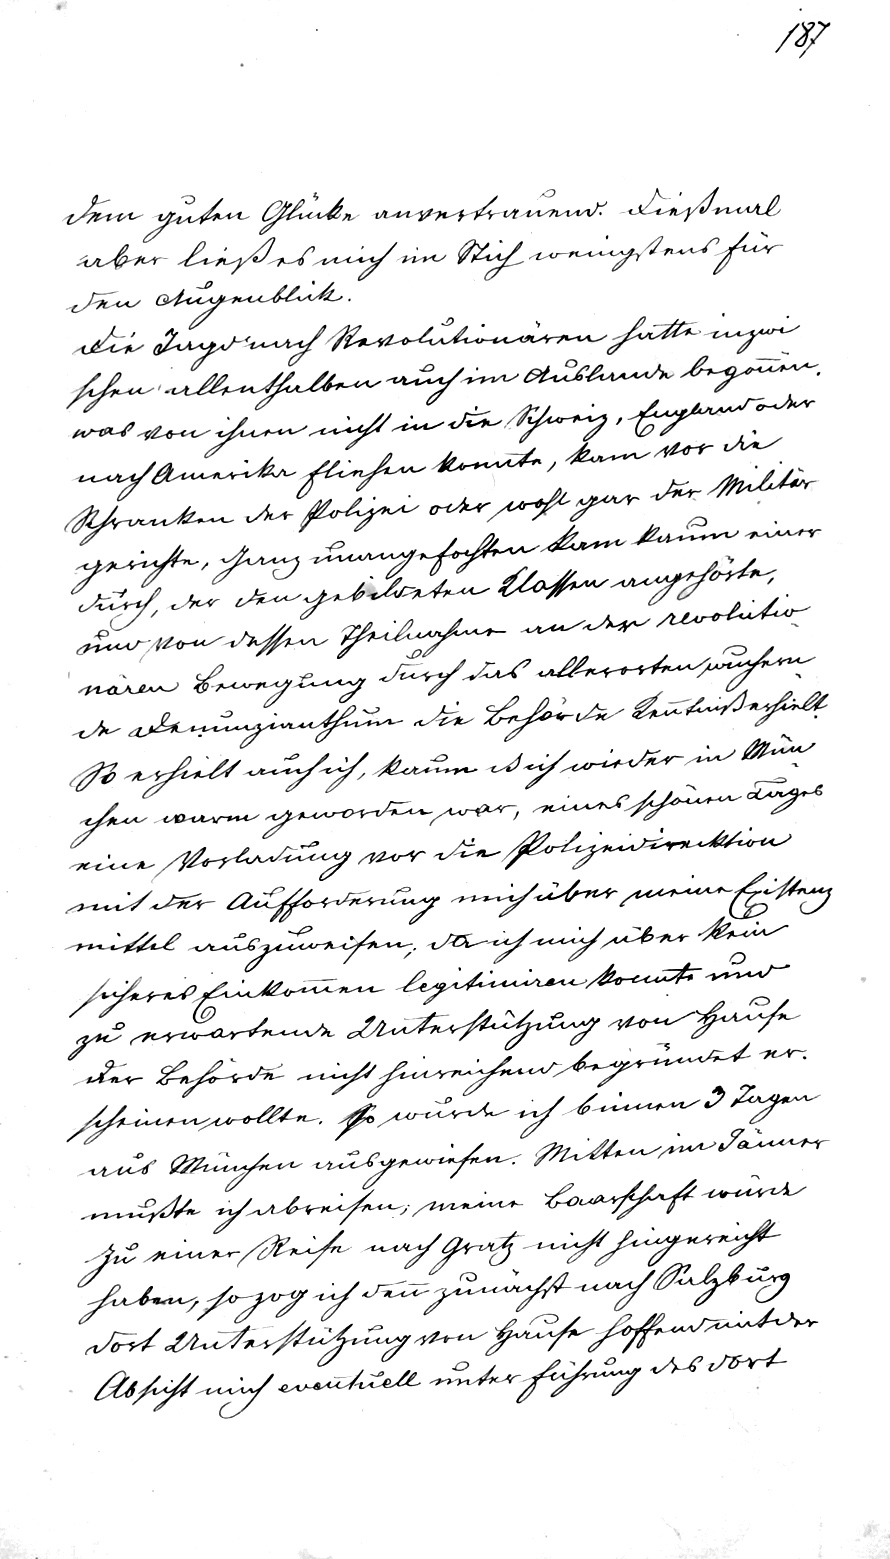 187
dem guten Glücke anvertrauend. Dießmal
aber ließ es mich im Stich wenigstens für
den Augenblick.
Die Jagd nach Revolutionären hatte inzwi
schen allenthalben auch im Auslande begonnen.
was von ihnen nicht in die Schweiz, England oder
nach Amerika fliehen konnte, kam vor die
Schranken der Polizei oder wohl gar der Militär
gerichte, Ganz unangefochten kam kaum einer
durch, der den gebildeten Klassen angehörte,
und von dessen Theilnahme an der revolutio
nären Bewegung durch das allerorten wuchern
de Denunzianthum die Behörde Kenntniß erhielt.
So erhielt auch ich, kaum daß ich wieder in Mün
chen warm geworden war, eines schönen Tages
eine Vorladung vor die Polizeidirecktion
mit der Aufforderung mich über meine Existenz
mittel auszuweisen; da ich mich über kein
sicheres Einkommen legitimiren konnte und
zu erwartende Unterstützung von Hause
der Behörde nicht hinreichend begründet er-
scheinen wollte. So wurde ich binnen 3 Tagen
aus München ausgewiesen. Mitten im Jänner
mußte ich abreisen; meine Baarschaft würde
zu einer Reise nach Gratz nicht hingereicht
haben, so zog ich denn zunächst nach Salzburg
dort Unterstützung von Hause hoffend mit der
Absicht mich eventuell unter Führung des dort